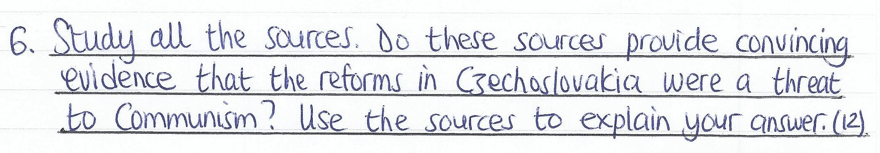 6. Study all the sources. Do these sources provide convincing
evidence that the reforms in Czechoslovakia were a threat
to Communism? Use the sources to explain your answer. (12).